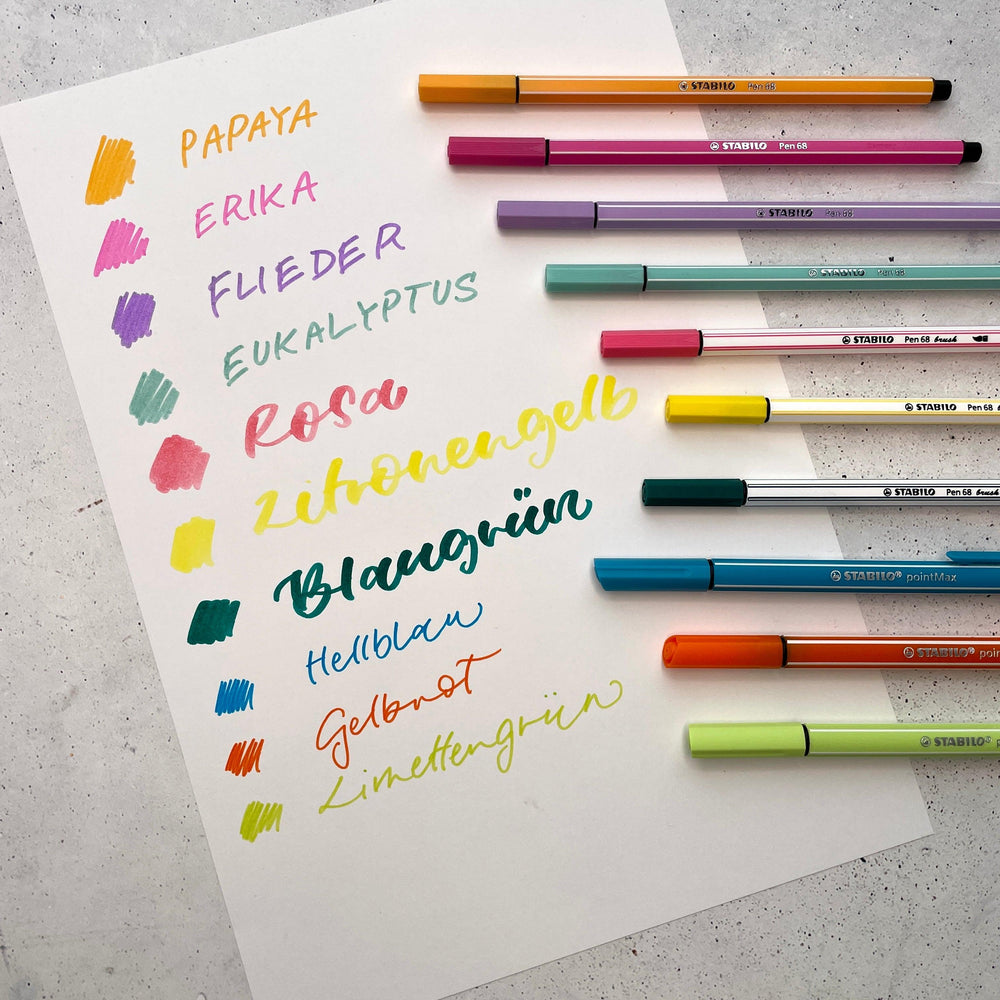 PAPAYA
ERIKA
FLIEDER
EUKALYPTUS
Rosa
Zitronengelb
Blaugrün
Hellblau
Gelbrot
Limettengrün
STABILO Pen 68
STABILO Pen 68
STABILO Pen 68
STABILO Pen 68
STABILO Pen 68 brush
STABILO Pen 68
STABILO Pen 68 brush
STABILO® pointMax
STABILO®
STABILO®